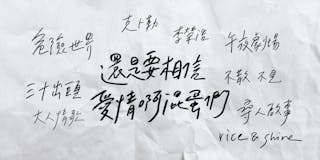 克卜勒
李榮浩
午夜劇場
危險世界
還是要相信
愛情啊混蛋們
不散 不見
三十出頭
大人情歌
尋人啟事
rice & shine